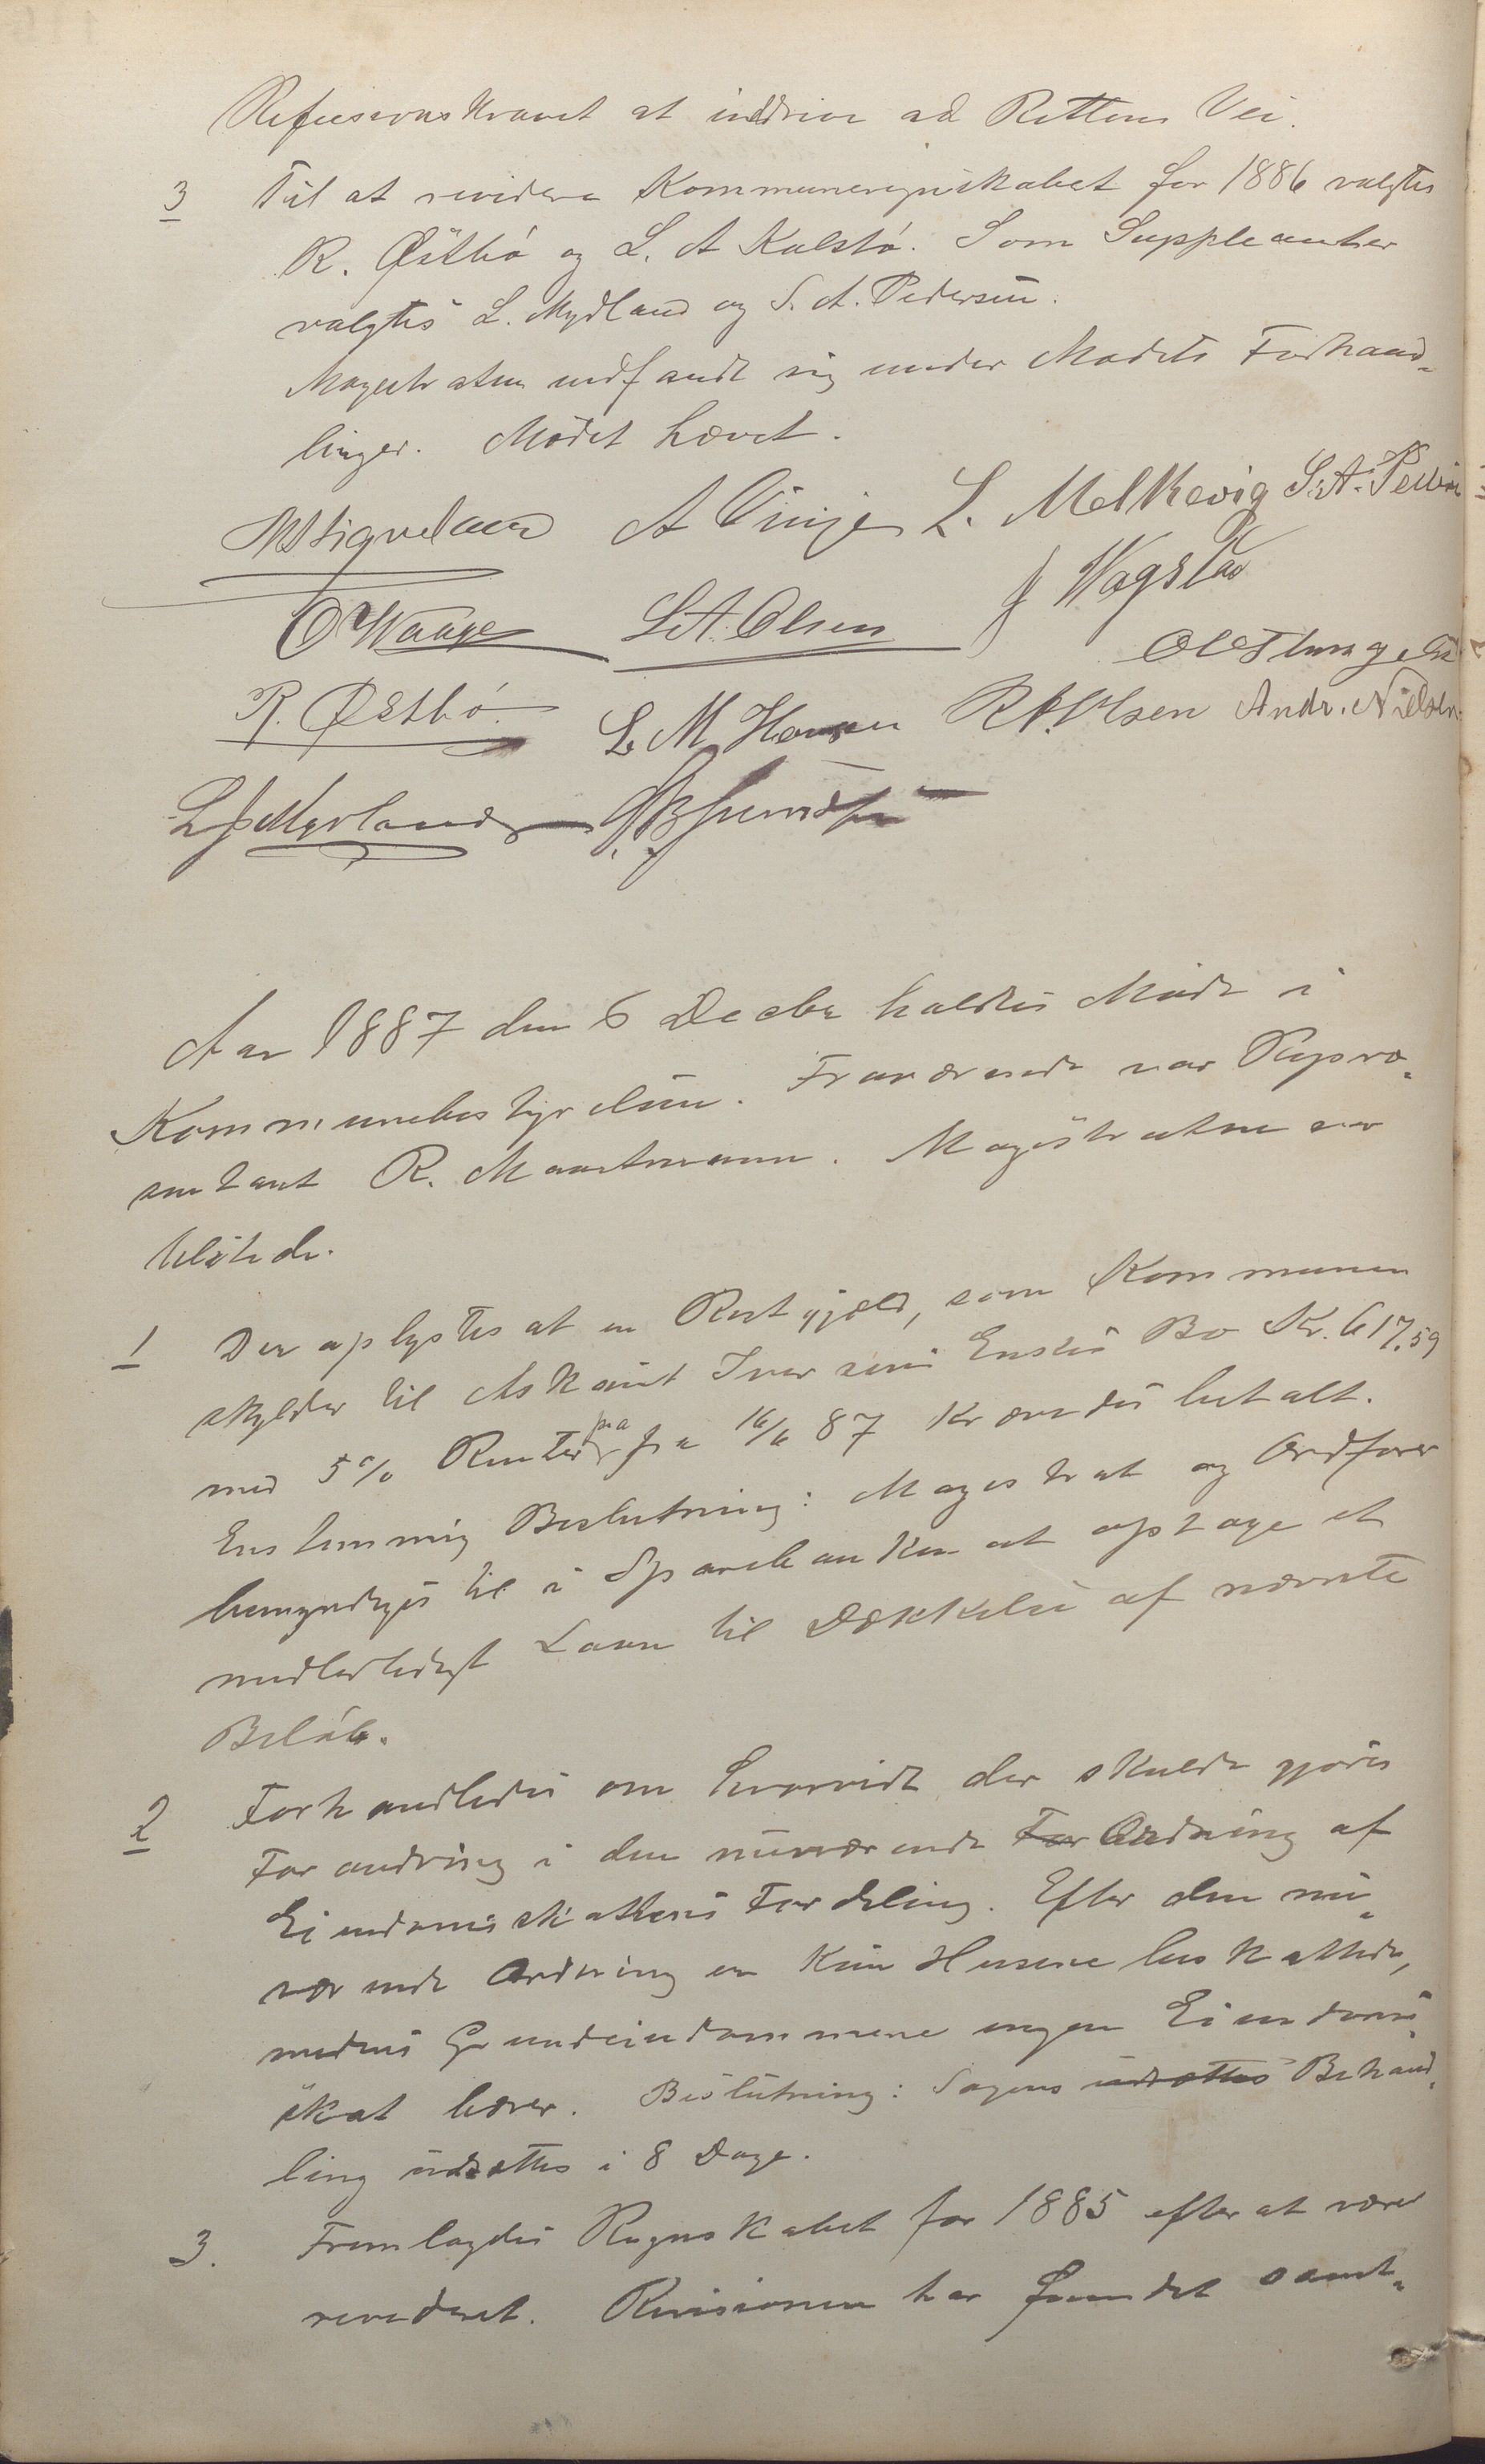 Refusionskravet at inddrive ad Rettens Vei.
3 Til at revidere Kommuneregnskabet for 1886 valgtes
R. Østbö og L. A Kalstö. Som Suppleanter
valgtes L. Mydland og S. A. Pedersen.
Magistraten indfandt sig under Mödets Forhand-
linger. Mödet hævet.
A Vinje L. Melkevig S. A.
O Waage L A. Olsen J Wagstad
R. Østbö. L. M Hansen R Olsen Andr. Nielsen
Aar 1887 den 6 Decbr holdtes Möde i
Kommunebestyrelsen. Fraværende var Repræ-
sentant R. Maartmann. Magistraten var
tilstede.
1 Der oplystes at en Restgjæld, som Kommunen
skylder til Askout Iversens Enkes Bo Kr. 617,59
med 5% Renter pa fra 16/6 87 krævedes betalt.
Enstemmig Beslutning: Magistrat og Ordförer
bemyndiges til i Sparebanken at optage et
midlertidigt Laan til Dækkelse af nævnte
Belöb.
2 Forhandledes om hvorvidt der skulde gjöres
Forandring i den nuværende For Ordning af
Eiendomsskattens Fordeling. Efter den nu-
værende Ordning er kun Husene beskattede,
medens Grundeiendommene ingen Eiendoms-
skat bærer. Beslutning: Sagens udsættes Behand-
ling udsættes i 8 Dage.
3. Fremlagdes Regnskabet for 1885 efter at være
revideret. Revisionen har fundet samt-